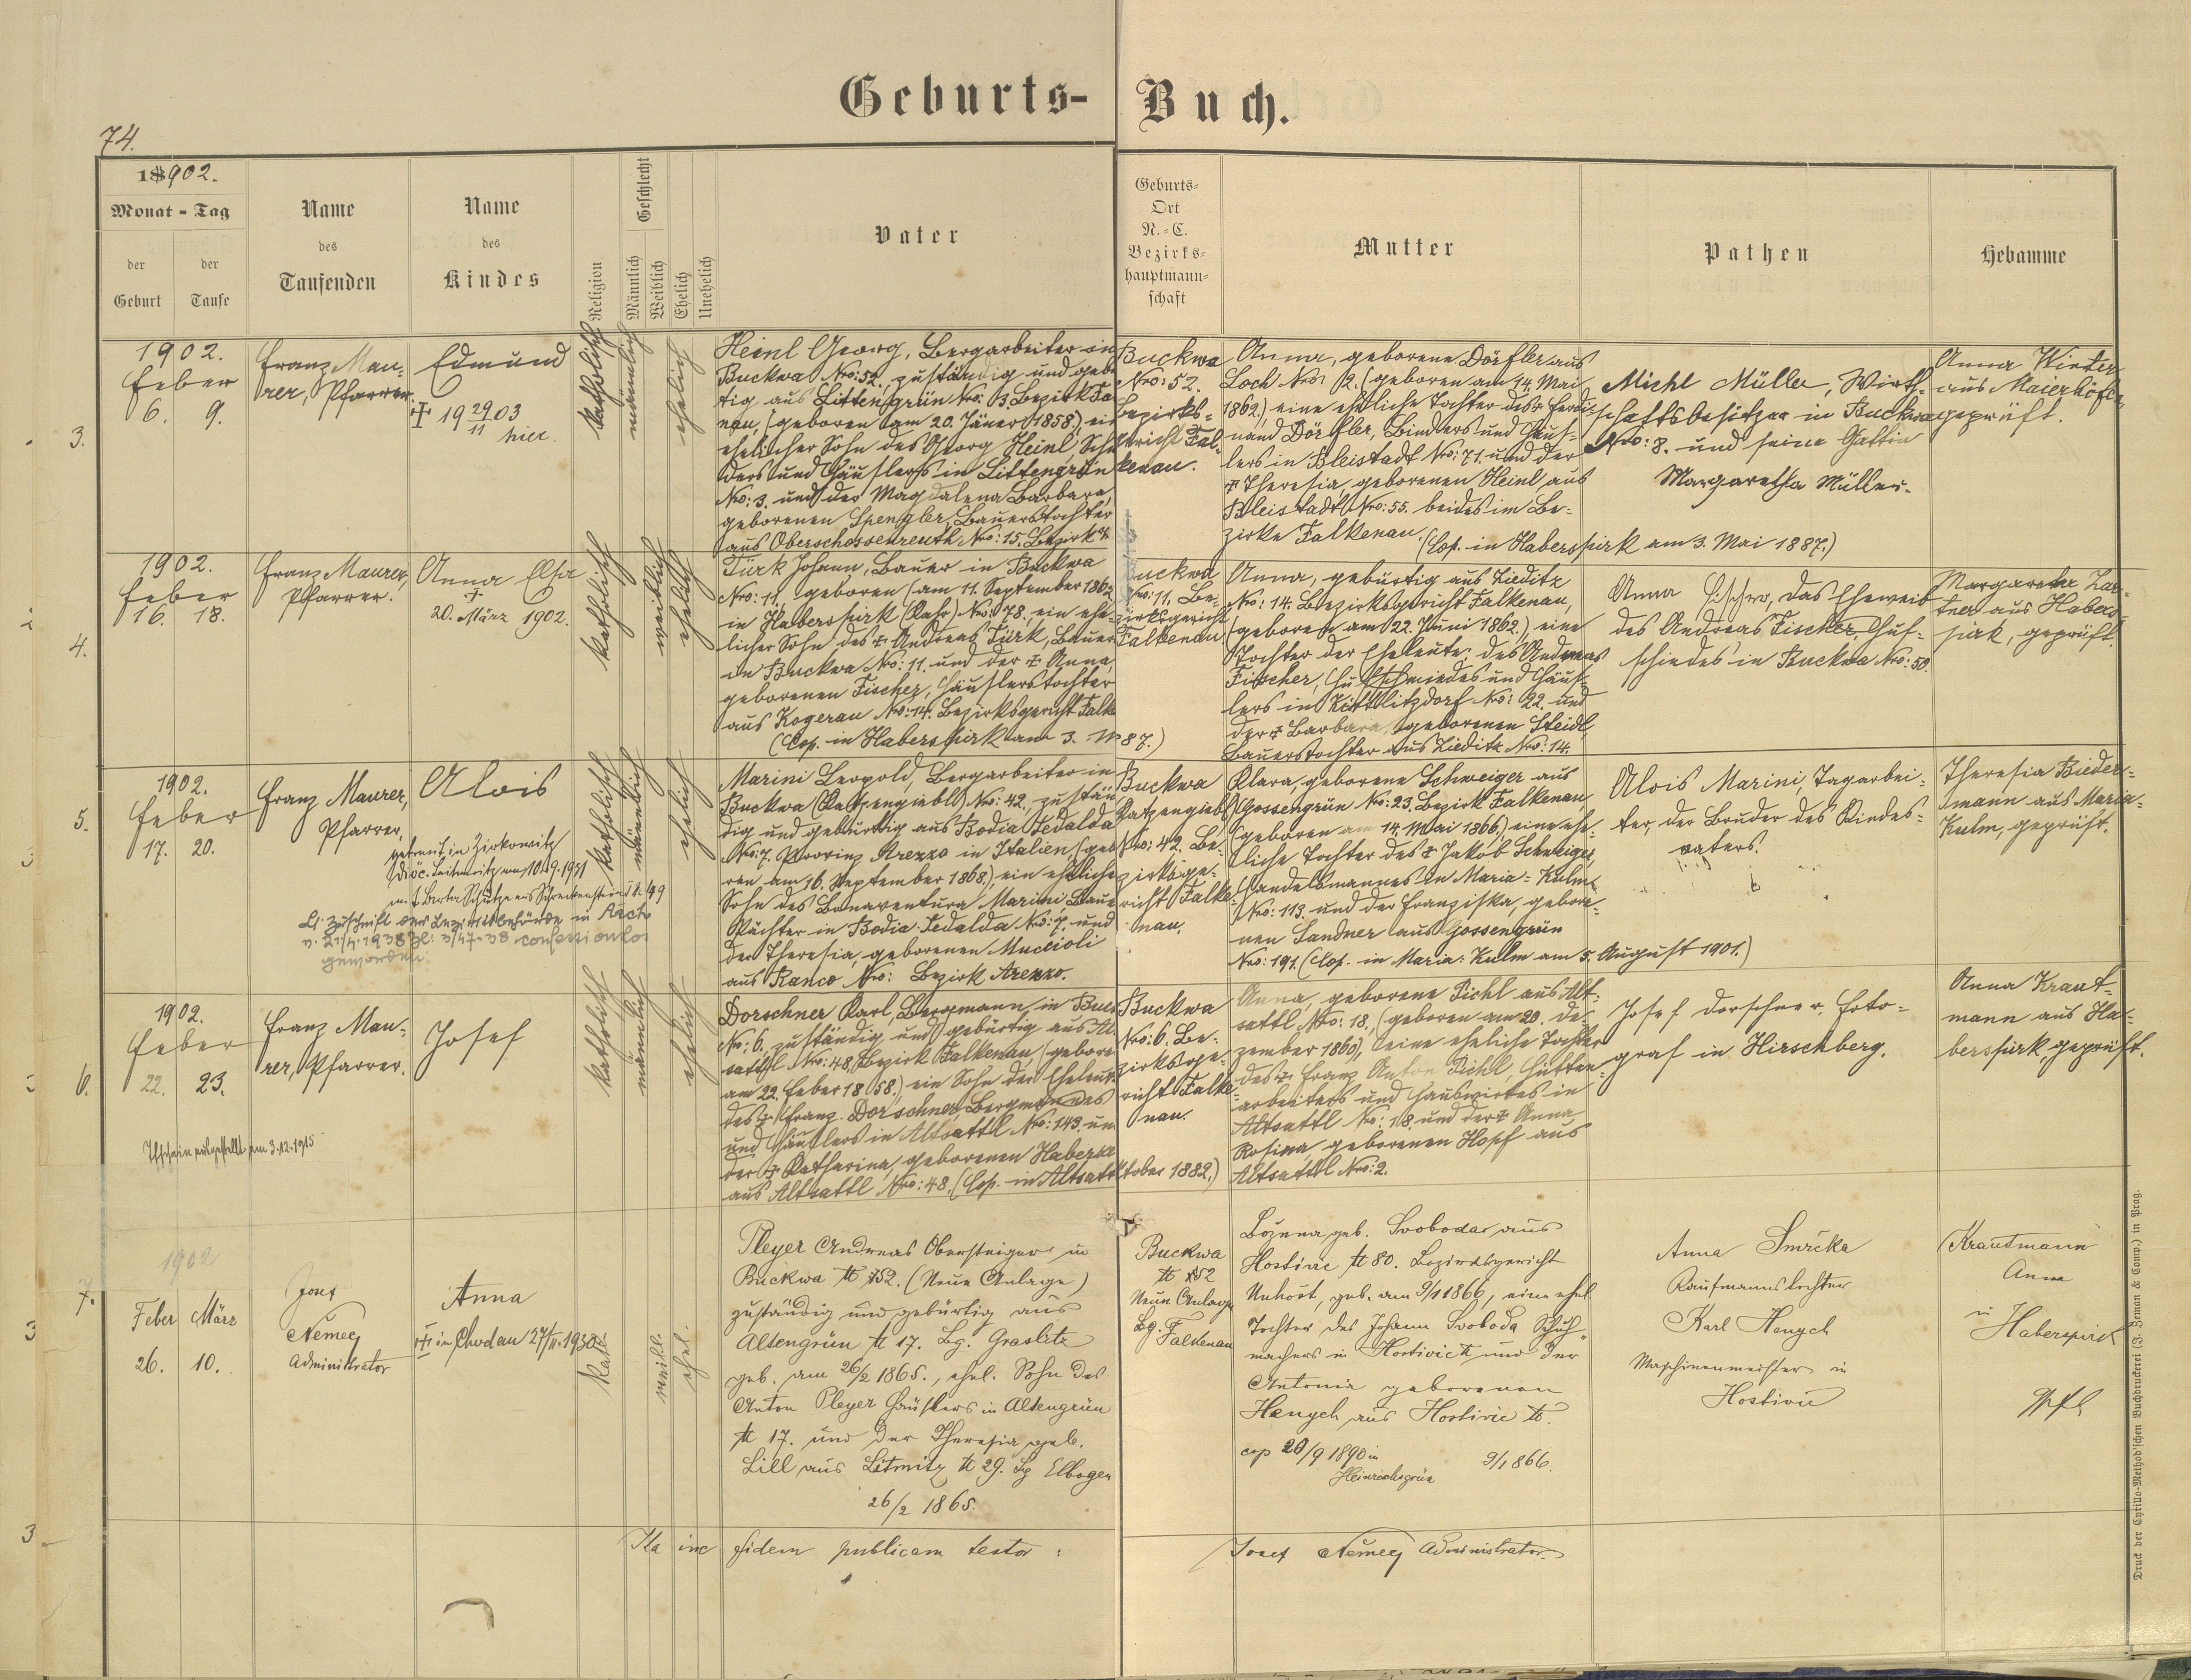 Geburts- Buch.
74.
18902.
Monat - Tag
der Geburt
der Taufe
Name des Taufenden
Name des Kindes
Religion
Geschlecht
Männlich
Weiblich
Ehelich
Unehelich
Vater
Geburts-
Ort
N.-C.
Bezirks-
hauptmann-
schaft
Mutter
Pathen
Hebamme
3.
1902.
Feber
6. 9.
Franz Mau-
rer, Pfarrer.
Edmund
† 19 29/11 03
hier.
katholisch
männlich
ehelich
Heinl Georg, Bergarbeiter in
Buckwa Nro: 52. zuständig und gebü
tig aus Littengrün Nro: 3. Bezirk Fa
nau, (geboren am 20. Jäner 1858.) ein
ehelicher Sohn des Georg Heinl, Schn
ders und Häuslers in Littengrün
Nro: 3. und der Magdalena Barbara,
geborenen Spengler, Bauerstochter
aus Oberschossenreuth Nro: 15. Bezirk
Buckwa
Nro: 52.
Bezirks-
gericht Fal-
kenau.
Anna, geborene Dörfler aus
Loch Nro: 2. (geboren am 14. Mai
1862.) eine eheliche Tochter des † Ferdi-
nand Dörfler, Binders und Häus-
lers in Bleistadt Nro: 71. und der
† Theresia, geborenen Heinl aus
Bleistadt Nro: 55. beides im Be-
zirke Falkenau.
(Cop. in Haberspirk am 3. Mai 1887.)
Michl Müller, Wirth-
schaftsbesitzer in Buckwa
Nro: 8. und seine Gattin
Margaretha Müller.
Anna Winter
aus Maierhöfen,
geprüft.
4.
1902.
Feber
16. 18.
Franz Maurer,
Pfarrer.
Anna Elsa
†
20. März 1902.
katholisch
weiblich
ehelich
Türk Johann, Bauer in Buckwa
Nro: 11. geboren (am 11. September 1862
in Haberspirk (Rahr) Nro: 78. ein ehe-
licher Sohn des † Andreas Türk, Bauer
in Buckwa Nro: 11. und der † Anna,
geborenen Fischer, Häuslerstochter
aus Kogerau Nro: 14. Bezirksgericht Falke
(Cop. in Haberspirk am 3. M 87.)
Buckwa
Nro: 11. Be-
zirksgericht
Falkenau
Anna, gebürtig aus Zieditz
Nro: 14. Bezirksgericht Falkenau,
(geboren am 22. Juni 1862.) eine
Tochter der Eheleute: des Andreas
Fischer, Hufschmiedes und Häus-
lers in Kittlitzdorf Nro: 22. und
der † Barbara, geborenen Steidl,
Bauerstochter aus Zieditz Nro: 14.
Anna Fischer, das Eheweib
des Andreas Fischer, Huf-
schmiedes in Buckwa Nro: 50.
Margaretha
aus Habers-
pirk, geprüft.
5.
1902.
Feber
17. 20.
Franz Maurer,
Pfarrer.
Alois
getraut in Zirkowitz
Diöc. Leitmeritz am 10.9.1931
mit Berta Schütze aus Schreckenstein
Lt. Zuschrift der Bezirksbehörde in
v. 21/4.1938 Zl: 3/47-38 confessionslos
geworden.
katholisch
männlich
ehelich
Marini Leopold, Bergarbeiter in
Buckwa (Katzengiebl) Nro: 42. zustän
dig und gebürtig aus Bodia Tedalda
Nro: 7. Provinz Arezzo in Italien, (gebo
ren am 16. September 1868), ein eheliche
Sohn des Bonaventura Marini, Bauer
Pächter in Bodia-Tedalda Nro: 7. und
der Theresia, geborenen Muccioli
aus Ranco Nro: Bezirk Arezzo.
Buckwa
Katzengiebl
Nro: 42. Be-
zirksge-
richt Falke-
nau.
Klara, geborene Schweiger aus
Gossengrün Nro: 23. Bezirk Falkenau,
(geboren am 14. Mai 1866,) eine ehe-
liche Tochter des † Jakob Schweiger,
Handelsmannes in Maria-Kulm
Nro: 113. und der Franziska, gebore-
nen Sandner aus Gossengrün
Nro: 191. (Cop. in Maria-Kulm am 5. August 1901.)
Alois Marini, Tagarbei-
ter, der Bruder des Kindes-
vaters.
Theresia Bieder-
mann aus Maria-
Kulm, geprüft.
6.
1902.
Feber
22. 23.
Franz Mau-
rer, Pfarrer.
Josef
Tfschein ausgestellt am 3.12.1915
katholisch
männlich
ehelich
Dorschner Karl, Bergmann in Buck
Nro: 6. zuständig und gebürtig aus Al
sattl Nro: 48. Bezirk Falkenau (gebore
am 22. Feber 1858.) ein Sohn der Eheleut
des † Franz Dorschner, Bergmannes
und Häuslers in Altsattl Nro: 149. un
der † Katharina, geborenen Haberze
aus Altsattl Nro: 48. (Cop. in Altsattl ktober 1882.)
Buckwa
Nro: 6. Be-
zirksge-
richt Falke-
nau.
Anna, geborene Pichl aus Alt-
sattl Nro: 18., (geboren am 20. De-
zember 1860), eine eheliche Tochter
des † Franz Anton Pichl, Hütten-
arbeiters und Hauswirtes in
Altsattl Nro: 18. und der † Anna
Rosina, geborenen Hopf aus
Altsattl Nro: 2.
Josef Dorschner, Foto-
graf in Hirschberg.
Anna Kraut-
mann aus Ha-
berspirk, geprüft.
7.
1902
Feber März
26. 10.
Josef
Němec
Administrator
Anna
† in Chodau 27/II. 1930
kath.
weibl.
ehel.
Pleyer Andreas Obersteiger in
Buckwa № 152. (Neue Anlage)
zuständig und gebürtig aus
Altengrün № 17. Bg. Graslitz
geb. am 26/2 1865., ehel. Sohn des
Anton Pleyer Häuslers in Altengrün
№ 17. und der Theresia geb.
Lill aus Littmitz № 29. Bg Elbogen
26/2 1865.
Buckwa
№ 152
Neue Anlage
Bg. Falkenau
Božena geb. Svoboda aus
Hostivic № 80. Bezirksgericht
Unhošt, geb. am 9/1 1866, eine ehel.
Tochter des Johann Svoboda Schuh-
machers in Hostivic № und der
Antonia geborenen
Hengch aus Hostivic №.
cop 20/9 1890 in
Heinrichsgrün
9/1 866.
Anna Smrčka
Kaufmannstochter
Karl Hengch
Maschinenmeister in
Hostivic
Krautmann
Anna
in
Haberspirk
Ita in fidem publicam testor:
Josef Němec Administrator.
Druck der Cyrillo-Method'schen Buchdruckerei (J. Zeman & Comp.) in Prag.